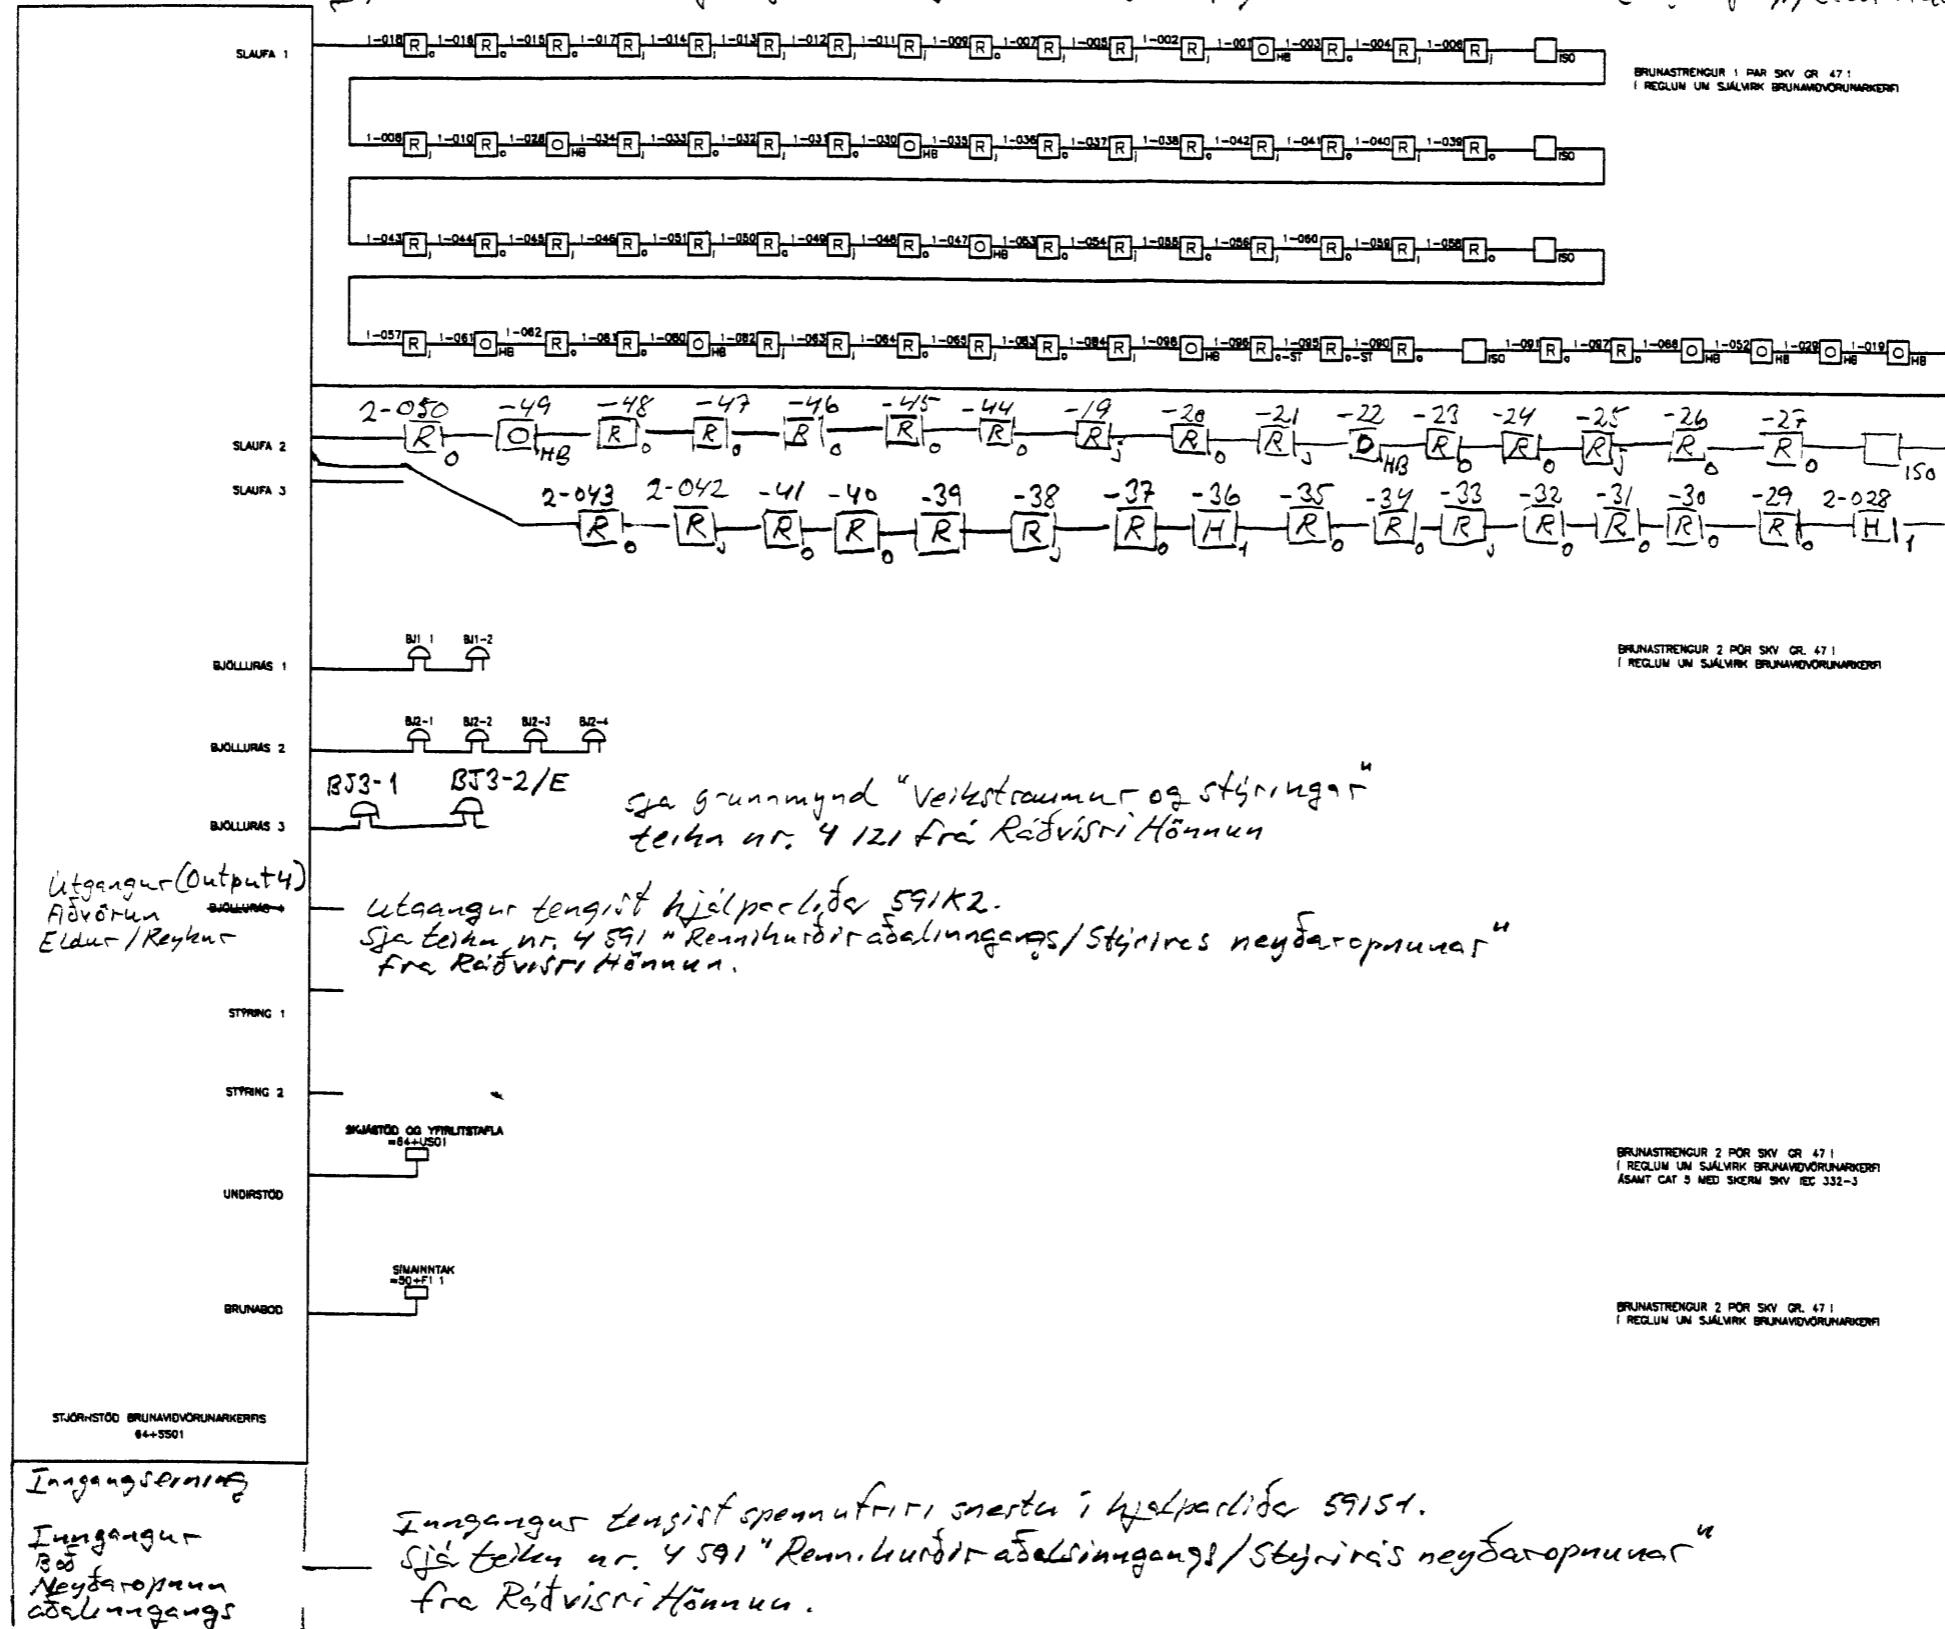 SLAUFA 1
1-018 R o 1-016 R o 1-015 R o 1-017 R j 1-014 R j 1-013 R j 1-012 R j 1-011 R j 1-009 R o 1-007 R j 1-005 R j 1-002 R j 1-001 O HB 1-003 R o 1-004 R j 1-006 R j ISO
BRUNASTRENGUR 1 PAR SKV GR 47 1
Í REGLUM UM SJÁLVIRK BRUNAVIDVÖRUNARKERFI
1-008 R j 1-010 R o 1-028 O HB 1-034 R j 1-033 R o 1-032 R j 1-031 R o 1-030 O HB 1-035 R j 1-036 R o 1-037 R j 1-038 R o 1-042 R j 1-041 R o 1-040 R j 1-039 R o ISO
1-043 R j 1-044 R o 1-045 R j 1-046 R o 1-051 R j 1-050 R o 1-049 R j 1-048 R o 1-047 O HB 1-053 R o 1-054 R j 1-055 R o 1-056 R j 1-060 R o 1-059 R j 1-058 R o ISO
1-057 R j 1-061 O HB 1-062 R o 1-081 R o 1-080 O HB 1-082 R j 1-063 R j 1-064 R o 1-065 R j R o 1-084 R j 1-098 O HB 1-096 R o-ST 1-095 R o-ST 1-090 R o ISO 1-091 R o 1-097 R o 1-068 O HB 1-052 O HB 1-029 O HB 1-019 O HB
2-050 -49 -48 -47 -46 -45 -44 -19 -20 -21 -22 -23 -24 -25 -26 -27
SLAUFA 2 R o O HB R o R o R o R o R o R j R o R j O HB R o R o R j R o R o ISO
SLAUFA 3
2-043 2-042 -41 -40 -39 -38 -37 -36 -35 -34 -33 -32 -31 -30 -29 2-028
R o R j R o R o R R j R o H 1 R o R o R j R o R o R o R o H 1
BJ1 1 BJ1-2
BJÖLLURÁS 1
BRUNASTRENGUR 2 PÖR SKV GR. 47 1
Í REGLUM UM SJÁLVIRK BRUNAVIDVÖRUNARKERFI
BJ2-1 BJ2-2 BJ2-3 BJ2-4
BJÖLLURÁS 2
BJ3-1 BJ3-2/E
BJÖLLURÁS 3
sja grunnmynd "Veikstraumur og stýringar"
teikn nr. 4 121 frá Ráðvísri Hönnun
Utgangur (Output 4)
Aðvörun BJÖLLURÁS 4
Eldur/Reykur
utgangur tengist hjálparliða 591K2.
Sja teikn nr. 4 591 "Rennihurðir aðalinngangs/Stýriras neyðaropnunar"
fra Ráðvisri Hönnun.
STÝRING 1
STÝRING 2
SKJÁSTÖD OG YFIRLITSTAFLA
=64+US01
UNDIRSTÖD
BRUNASTRENGUR 2 PÖR SKV GR 47 1
Í REGLUM UM SJÁLVIRK BRUNAVIDVÖRUNARKERFI
ÁSAMT CAT 5 MED SKERM SKV IEC 332-3
SÍMAINNTAK
=50+F1 1
BRUNABOD
BRUNASTRENGUR 2 PÖR SKV GR. 47 1
Í REGLUM UM SJÁLVIRK BRUNAVIDVÖRUNARKERFI
STJÓRNSTÖD BRUNAVIDVÖRUNARKERFIS
64+SS01
Inngangseining
Inngangur
Boð
Neyðaropnun
aðalinngangs
Inngangur tengist spennufriri snertu i hjalparliða 591S1.
Sjá teikn nr. 4 591 "Rennihurðir aðalsinngangs/Stýrirás neyðaropnunar"
fra Ráðvisri Hönnun.